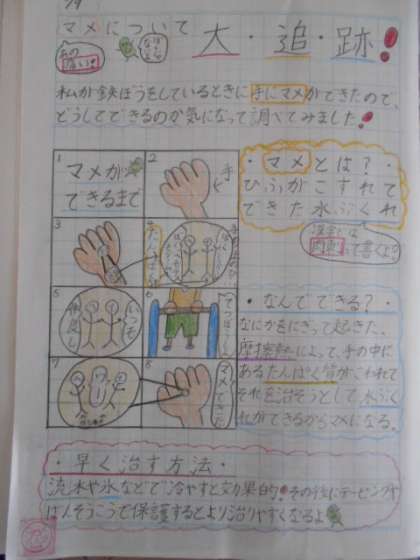 マメについて
大・追・跡!
私が鉄ぼうをしているときに手にマメができたので、
どうしてできるのか気になって調べてみました!
1
マメが
できるまで
2
手
3
5
仲良し
6
てつぼう
7
8
マメできた
・マメとは?・
ひふがこすれて
できた水ぶくれ
漢字では
肉刺って書くよ
・なんでできる?・
なにかをにぎって起きた、
摩擦熱によって、手の中に
あるたんぱく質がこわれて
それを治そうとして、水ぶく
れができるからマメになる。
・早く治す方法・
流水や氷などで冷やすと効果的!その後にテーピングや
ばんそうこうで保護するとより治りやすくなるよ